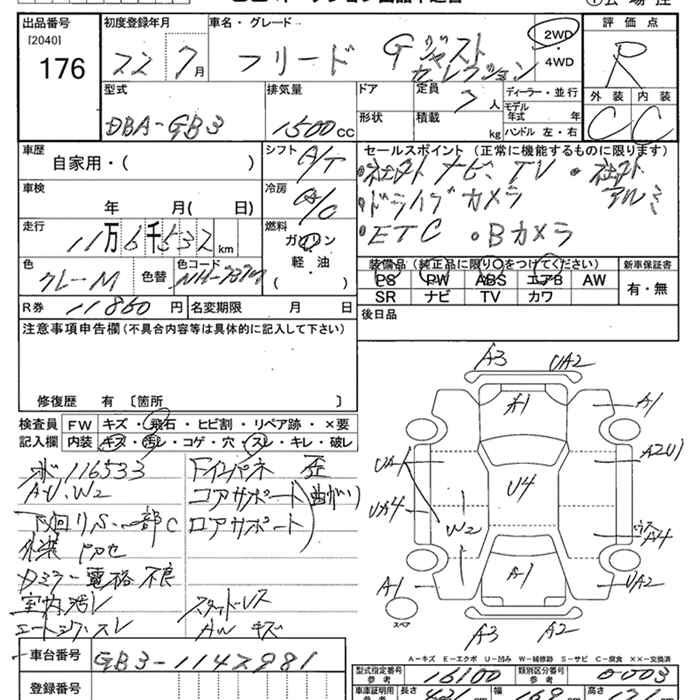 出品番号
[2040]
176
初度登録年月
22 7月
車名・グレード
フリード G ジャスト
セレクション
2WD
4WD
評価点
R
外装 内装
C C
型式
DBA-GB3
排気量
1500cc
ドア
形状
定員 7人
積載 kg
ディーラー・並行
モデル
年式 年
ハンドル 左・右
車歴
自家用・( )
シフト A/T
セールスポイント (正常に機能するものに限ります)
・社外ナビ、TV ・社外
・ドライブカメラ アルミ
・ETC ・Bカメラ
車検
年 月( 日)
冷房 A/C
走行
11万6千532km
燃料
ガソリン
軽・油
( )
色
グレーM
色替
色コード
装備品 (純正品に限り○をつけてください)
PS PW ABS エアB AW
SR ナビ TV カワ
新車保証書
有・無
R券 11860円
名変期限 月 日
後日品
注意事項申告欄 (不具合内容等は具体的に記入して下さい)
修復歴 有 〔箇所 〕
検査員
記入欄
FW キズ・飛石・ヒビ割・リペア跡・×要
内装 キズ・汚レ・コゲ・穴・スレ・キレ・破レ
116533
A・U、W2
下回りS、一部C
外装
Dミラー電格不良
室内汚レ
Fインパネ 歪
コアサポート(曲がり)
ロアサポート
スタッドレス
AWキズ
A3 UA2
A1 A1
UA A2U1
U4
UA4 W2 A4
A1 A1 UA2
スペア
A3 A2
A-キズ E-エクボ U-凹み W-補修跡 S-サビ C-腐食 XX-交換済
車台番号
GB3-1142981
登録番号
型式指定番号
参考
16100
類別区分番号
参考
0003
車庫証明用
参考
長さ 421cm 幅 169cm 高さ